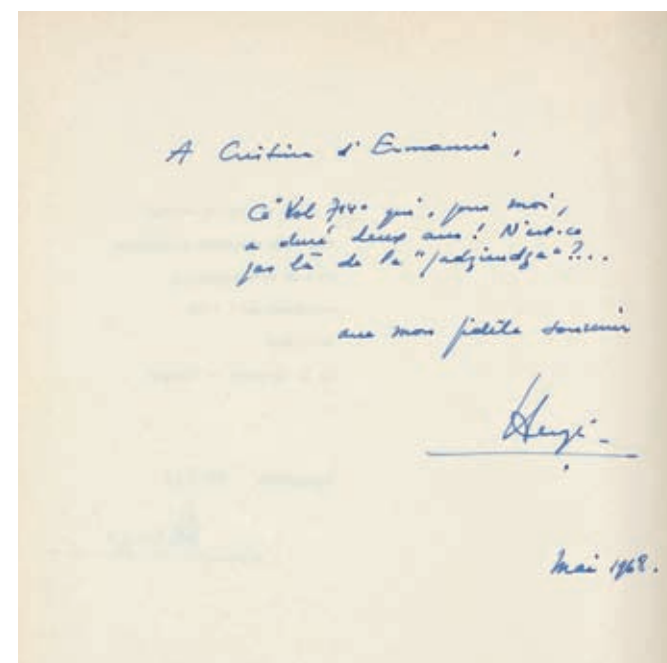 A Cristina d'Ermanni,
Ce "Vol 714" qui, pour moi,
a duré deux ans! N'est-ce
pas là de la "padziendza"?...
avec mon fidèle souvenir
Hergé
Mai 1968.